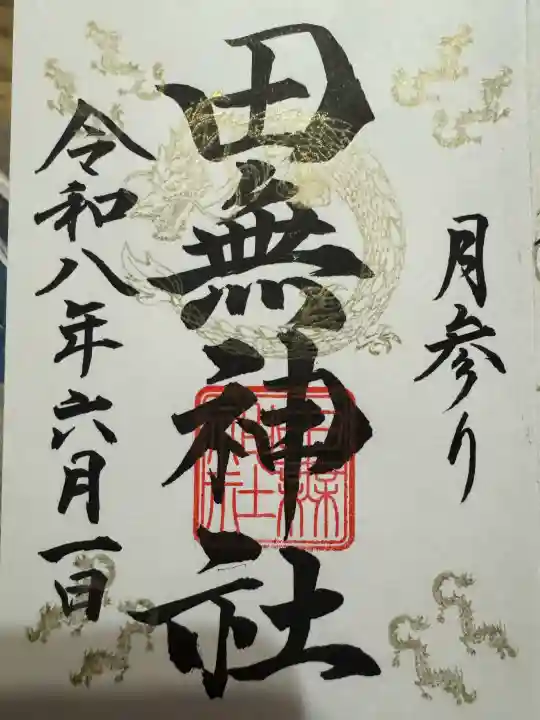 月参り
田無神社
令和八年六月一日